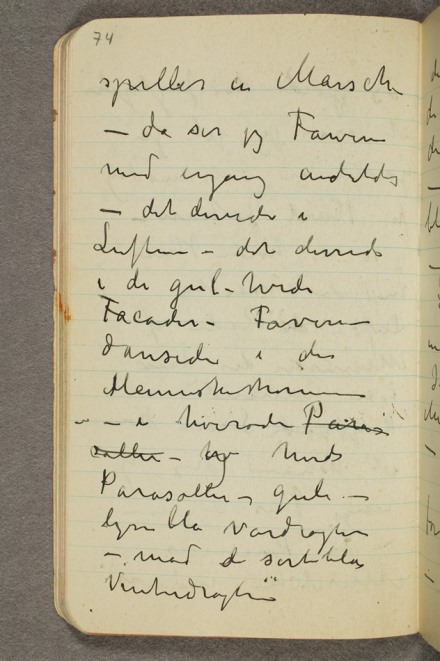 74
spilles en Marsch
– da ser jeg Farverne
med engang anderledes
– det dirrede i
Luften – det dirrede
i de gul-hvide
Facader – Farverne
dansede i den
Menneskestrømmen
– i hvirode Para-
soller – og hvide
Parasoller – gule –
lyseblå Vårdragter
– mod de sortblå
Vinterdragter